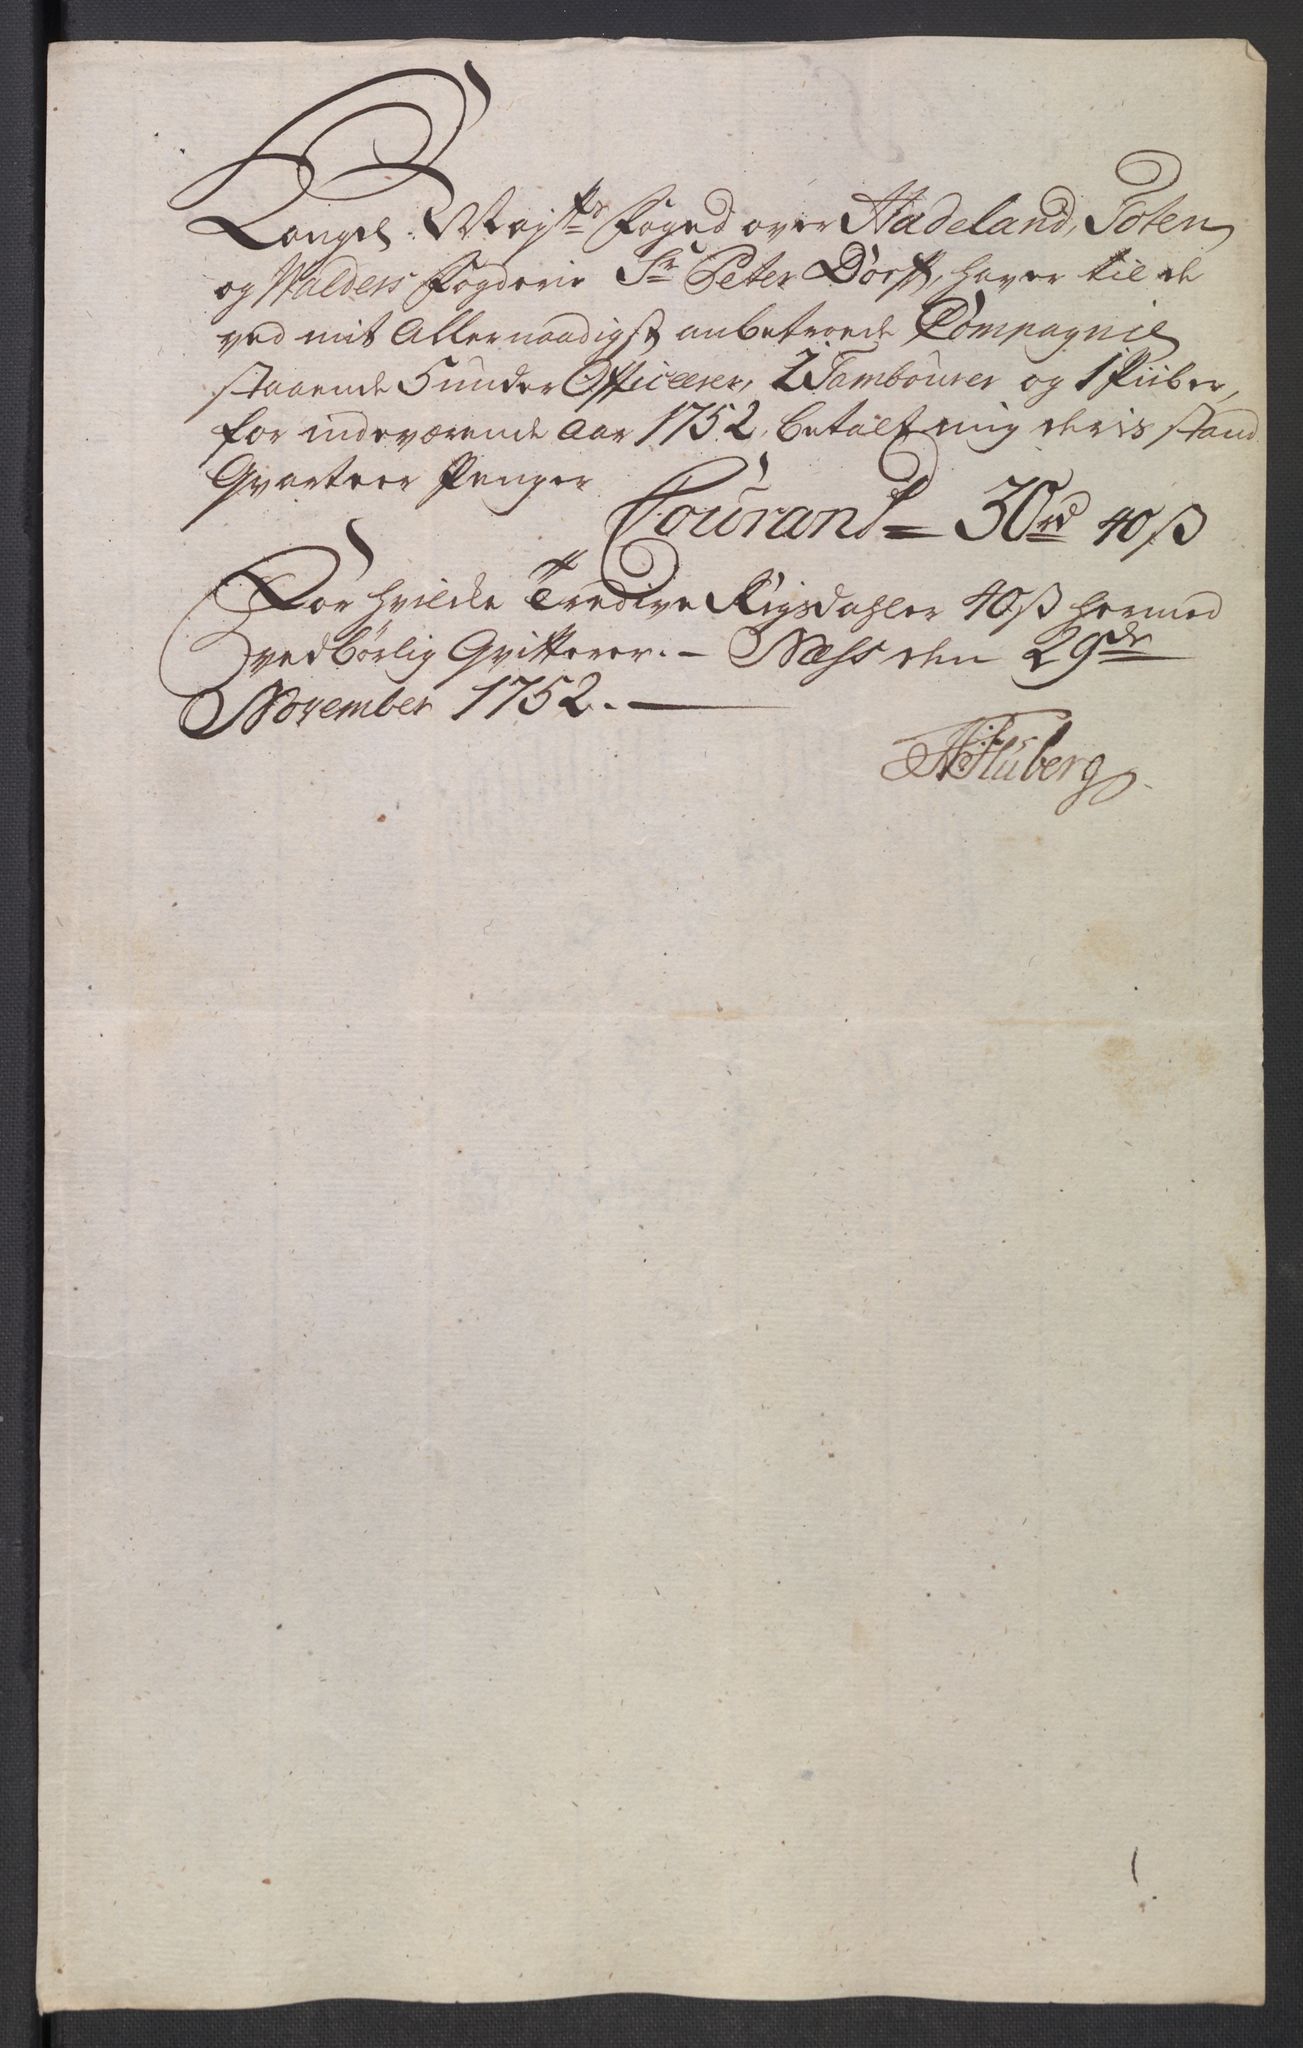 Kongel: Mayst:ds Foged over Hadeland, Toten
og Walders Fogderie Sr Peter Dorf, haver til de
ved mit Allernaadigst anbetroede Compagnie
staaende 5 under Officerer, 2 Tambourer og 1 Piiber,
for indeværende Aar 1752, betalt mig deris stand
Qvarteer Penger
Courant = 30 rd 40 ß
For hvilke Tredive Rigsdahler 40 ß hermed
vedbørlig Qvitterer. - Næss den 29de
November 1752. —
Huberg